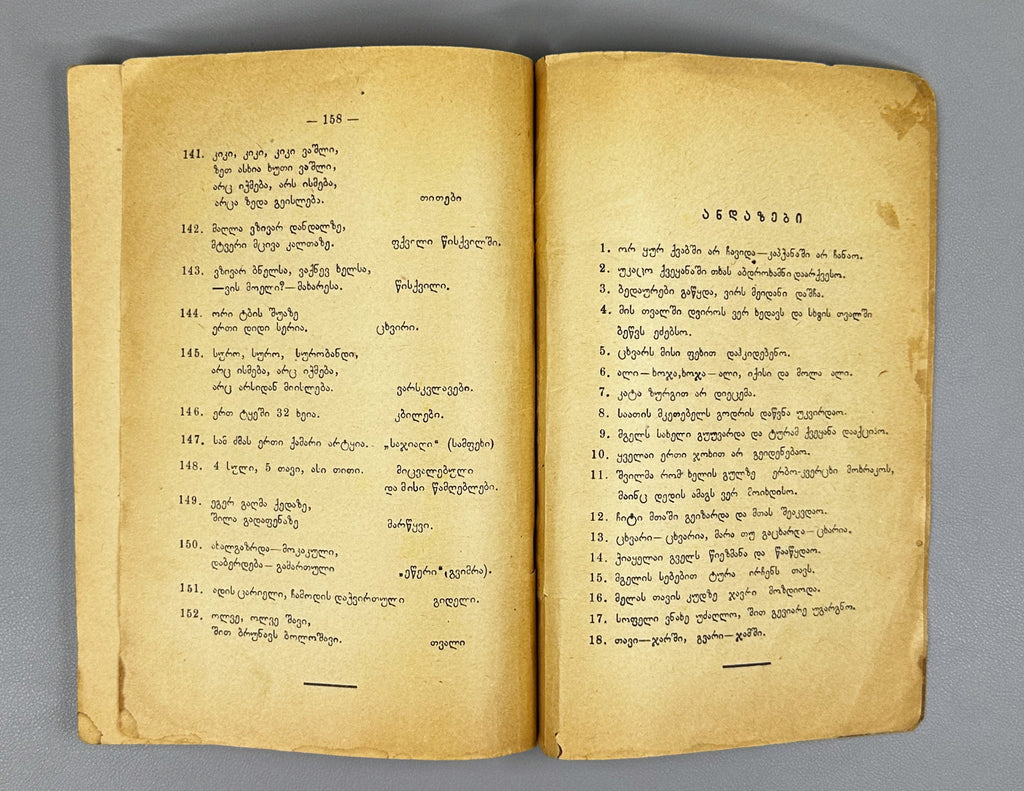 — 158 —
141. კიკი, კიკი, კიკი ვაშლი,
ზეთ ასხია ხუთი ვაშლი,
არც იჭმება, არს ისმება,
არცა ზედა გეისლება. თითები
142. მაღლა ვზივარ დანდალზე,
მტვერი მცივა კალთაზე. ფქვილი წისქვილში.
143. ვზივარ ბნელსა, ვაქნევ ხელსა,
—ვის მოელი?—მახარესა. წისქვილი.
144. ორი ტბის შუაზე
ერთი დიდი სერია. ცხვირი.
145. სურო, სურო, სურობანდი,
არც ისმება, არც იჭმება,
არც არსიდან მიისლება. ვარსკვლავები.
146. ერთ ტყეში 32 ხეია. კბილები.
147. სამ ძმას ერთი ქამარი არტყია. „საჯიალი“ (სამფეხი)
148. 4 სული, 5 თავი, ასი თითი. მიცვალებული
და მისი წამღებლები.
149. ეგერ გაღმა ქედაზე,
შილა გადაფენაზე მარწყვი.
150. ახალგაზრდა—მოკაკული,
დაბერდება—გამართული „ეწერი“ (გვიმრა).
151. ადის ცარიელი, ჩამოდის დაქვირთული გიდელი.
152. ოლვე, ოლვე შავი,
შით ბრუნავს ბოლოშავი. თვალი
ანდაზები
1. ორ ყურ ქვაბში არ ჩავიდა—კაპქანაში არ ჩანაო.
2. უკაცო ქვეყანაში თხას აბდროხამნი დაარქვესო.
3. ბედაურები გაწყდა, ვირს მეიდანი დაშჩა.
4. მის თვალში დვიროს ვერ ხედავს და სხვის თვალში
ბეწვს ეძებსო.
5. ცხვარს მისი ფეხით დაჰკიდებენო.
6. ალი—ხოჯა, ხოჯა—ალი, იქისი და მოლა ალი.
7. კატა ზურგით არ დიეცემა.
8. საათის მკეთებელს გოდრის დაწვნა უკვირდაო.
9. მგელს სახელი გუუვარდა და ტურამ ქვეყანა დააქციაო.
10. ყველაი ერთი ჯოხით არ გეიდენებაო.
11. შვილმა რომ ხელის გულზე ერბო-კვერცხი მოხრაკოს,
მაინც დედის ამაგს ვერ მოიხდისო.
12. ჩიტი მთაში გეიზარდა და მთას შეაკვდაო.
13. ცხვარი—ცხვარია, მარა თუ გაცხარდა—ცხარია.
14. ჭიაყელაი გველს წიეზმანა და წააწყდაო.
15. მგელის სებებით ტურა ირჩენს თავს.
16. მელას თავის კუდზე ჯავრი მოზდიოდა.
17. სოფელი ვნახე უძაღლო, შით გევიარე უვარგნო.
18. თავი—ჯარში, გვარი—ჯამში.